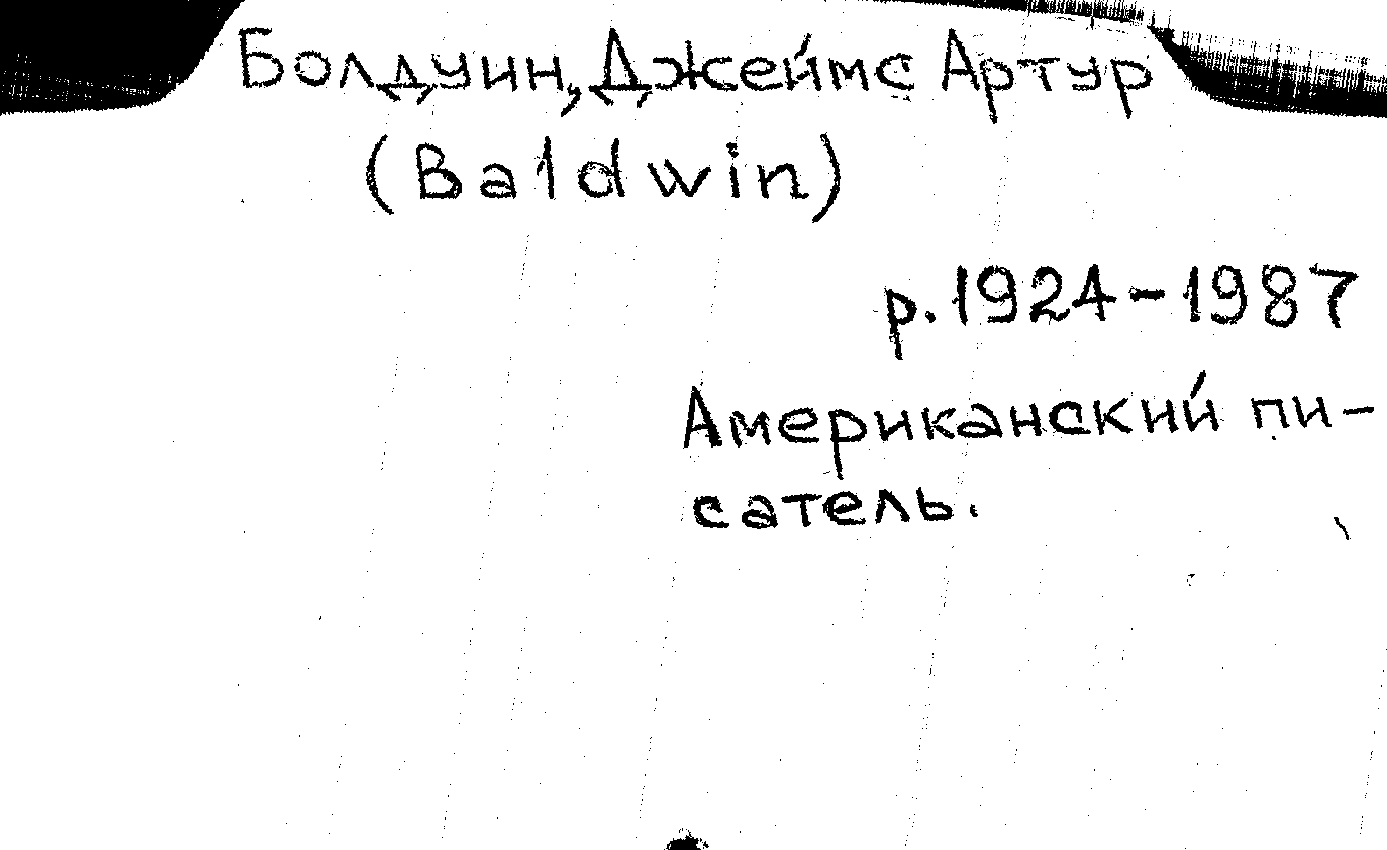 Болдуин, Джеймс Артур
(Baldwin)
р. 1924-1987
Американский пи-
сатель.